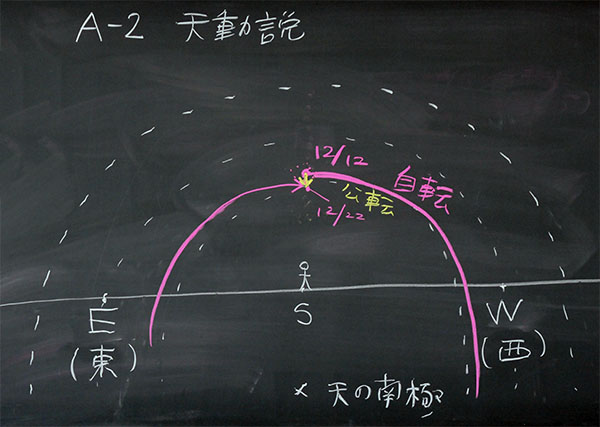 A-2 天動説
12/12
自転
公転
12/22
E
S
W
(東)
(西)
×天の南極